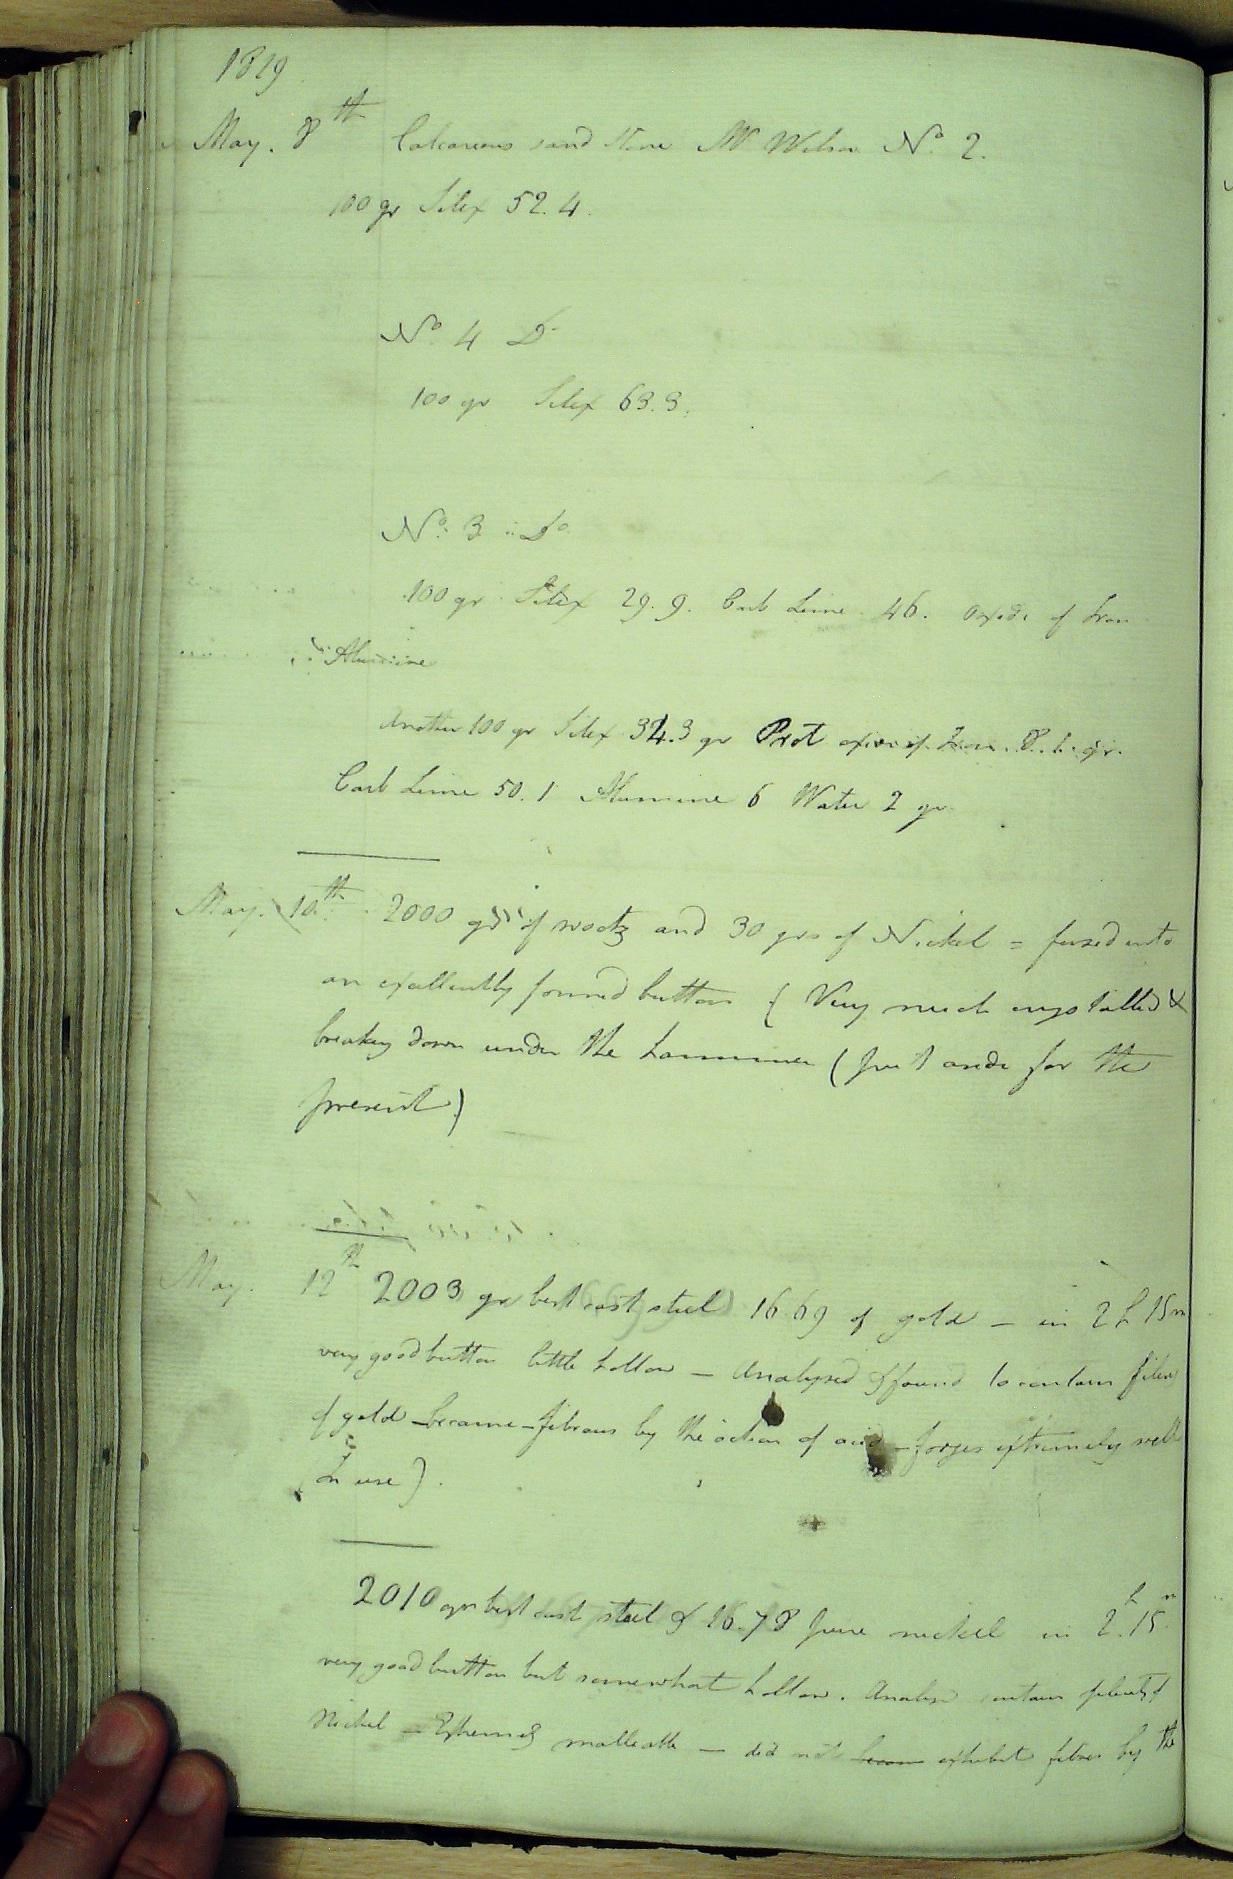 1819
May. 8th Calcareous sand stone Mr Wilson No. 2.
100 gr Silex 52.4.
No 4 Do
100 gr Silex 63.3.
No. 3 Do
100 gr Silex 29.9. Carb Lime 46. Oxide of Iron
Alumine
Another 100 gr Silex 34.3 gr Prot oxide of Iron gr.
Carb Lime 50.1 Alumine 6 Water 2 gr
May. 10th 2000 grs of wootz and 30 grs of Nickel = fused into
an exallently formed button ( Very much crystalled &
breaking down under the hammer (put aside for the
present)
May. 12th 2003 gr best cast steel 16.69 of gold - in 2 h 15m
very good button little hollow - Analysed & found to contain
of gold - became - fibrous by the action of acid - forges extremely well
(In use).
2010 grs best cast steel & 16.78 pure nickel in 2.h 15.m
very good button but somewhat hollow. Analysed contains plenty of
Nickel - Extremely malleable - did not becom exhibit fibres by the